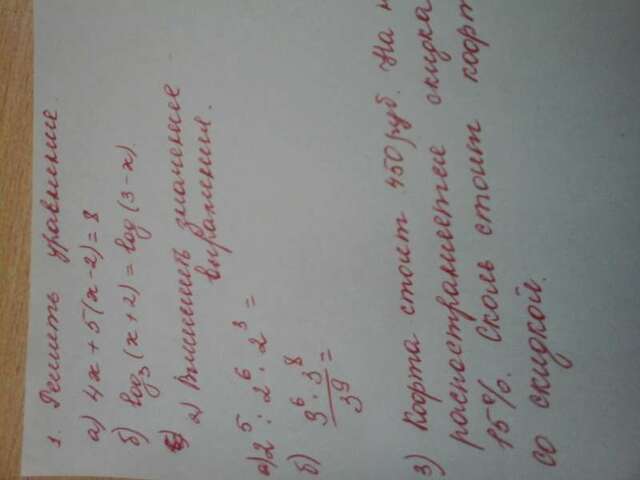 1. Решить уравнение.
а) 4x + 5(x-2) = 8
б) log₃(x+2) = log(3-x).
2) Вычислить значение
выражения.
а) 2⁵ : 2⁶ · 2³ =
б) 3⁶ · 3⁸ / 3⁹ =
3) Коорта стоит 450 руб. На н
распостраняется скидка
15%. Сколь стоит коорт
со скидкой.